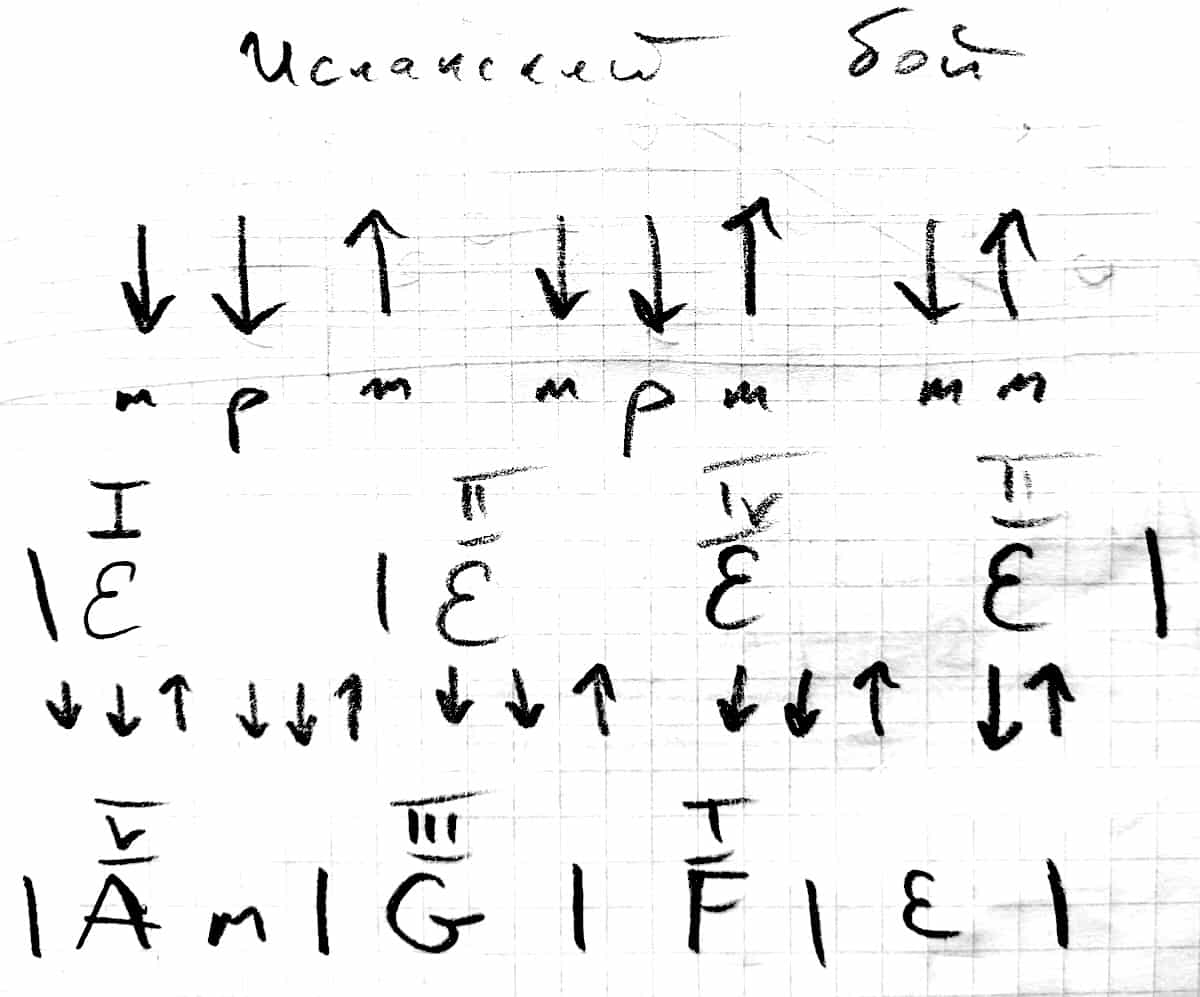 Испанский бой
↓ ↓ ↑ ↓ ↓ ↑ ↓ ↑
m p m m p m m m
I II IV II
| E | E E E |
↓ ↓ ↑ ↓ ↓ ↑ ↓ ↓ ↑ ↓ ↓ ↑ ↓ ↑
V III I
| A m | G | F | E |